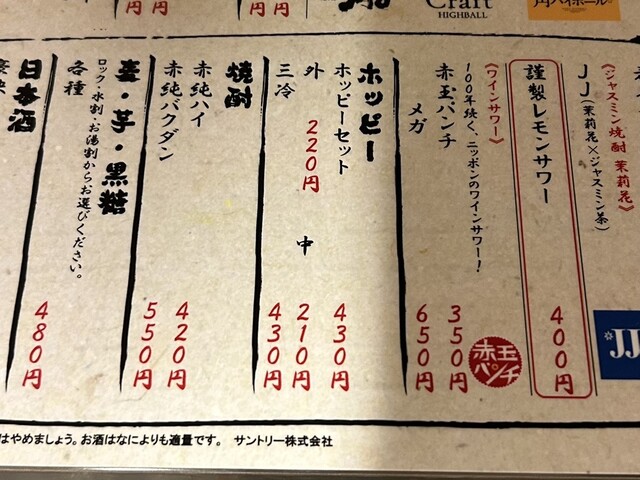 円
円
Craft
HIGHBALL
角ハイボール
《ジャスミン焼酎 茉莉花》
JJ(茉莉花×ジャスミン茶)
JJ
謹製レモンサワー 400円
《ワインサワー》
100年続く、ニッポンのワインサワー!
赤玉パンチ 350円
メガ 650円
赤玉パンチ
ホッピー
ホッピーセット 430円
外 220円 中 210円
三冷 430円
焼酎
赤純ハイ 420円
赤純バクダン 550円
麦・芋・黒糖
ロック・水割・お湯割からお選びください。
各種 480円
日本酒
はやめましょう。お酒はなによりも適量です。 サントリー株式会社